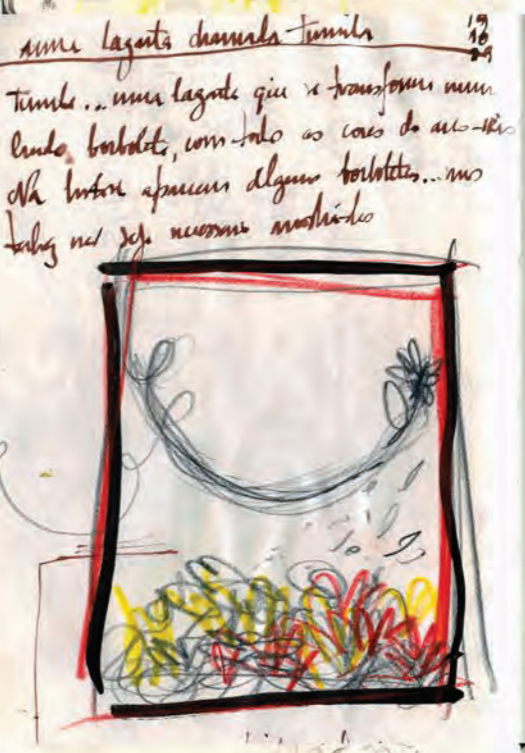 uma lagarta chamada Tumila
19
10
Tumila... uma lagarta que se transforma numa
linda borboleta, com todo as cores do arco-íris
Na história aparecem algumas borboletas... mas
talvez não seja necessário mostrá-las